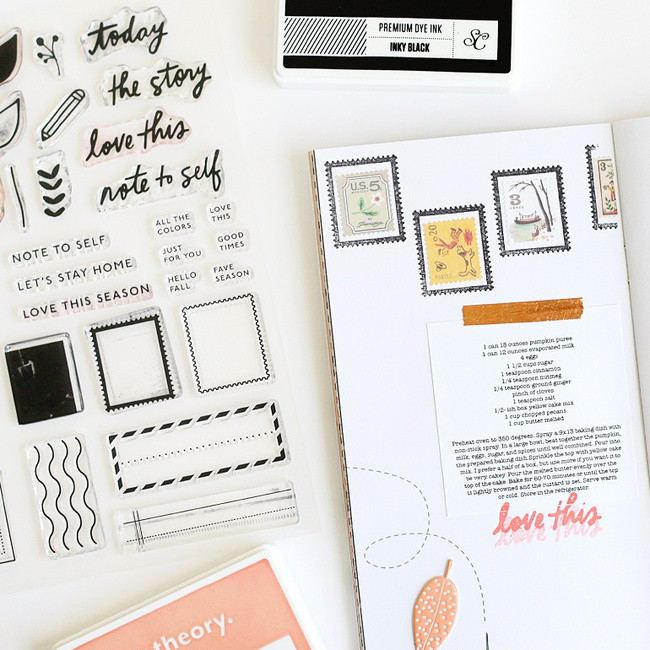 today
the story
love this
note to self
ALL THE
COLORS
LOVE
THIS
NOTE TO SELF
JUST
FOR YOU
GOOD
TIMES
LET'S STAY HOME
HELLO
FALL
FAVE
SEASON
LOVE THIS SEASON
PREMIUM DYE INK
INKY BLACK
SC
U.S. 5
20
3
3
1 can 15 ounces pumpkin puree
1 can 12 ounces evaporated milk
4 eggs
1 1/2 cups sugar
1 teaspoon cinnamon
1/4 teaspoon nutmeg
1/4 teaspoon ground ginger
pinch of cloves
1 teaspoon salt
1/2- ish box yellow cake mix
1 cup chopped pecans
1 cup butter melted
Preheat oven to 350 degrees. Spray a 9x13 baking dish with
non-stick spray. In a large bowl, beat together the pumpkin,
milk, eggs, sugar, and spices until well combined. Pour into
the prepared baking dish. Sprinkle the top with yellow cake
mix. I prefer a half of a box, but use more if you want it to
be very cakey. Pour the melted butter evenly over the
top of the cake. Bake for 60-70 minutes or until the top
is lightly browned and the custard is set. Serve warm
or cold. Store in the refrigerator.
love this
love this
theory.